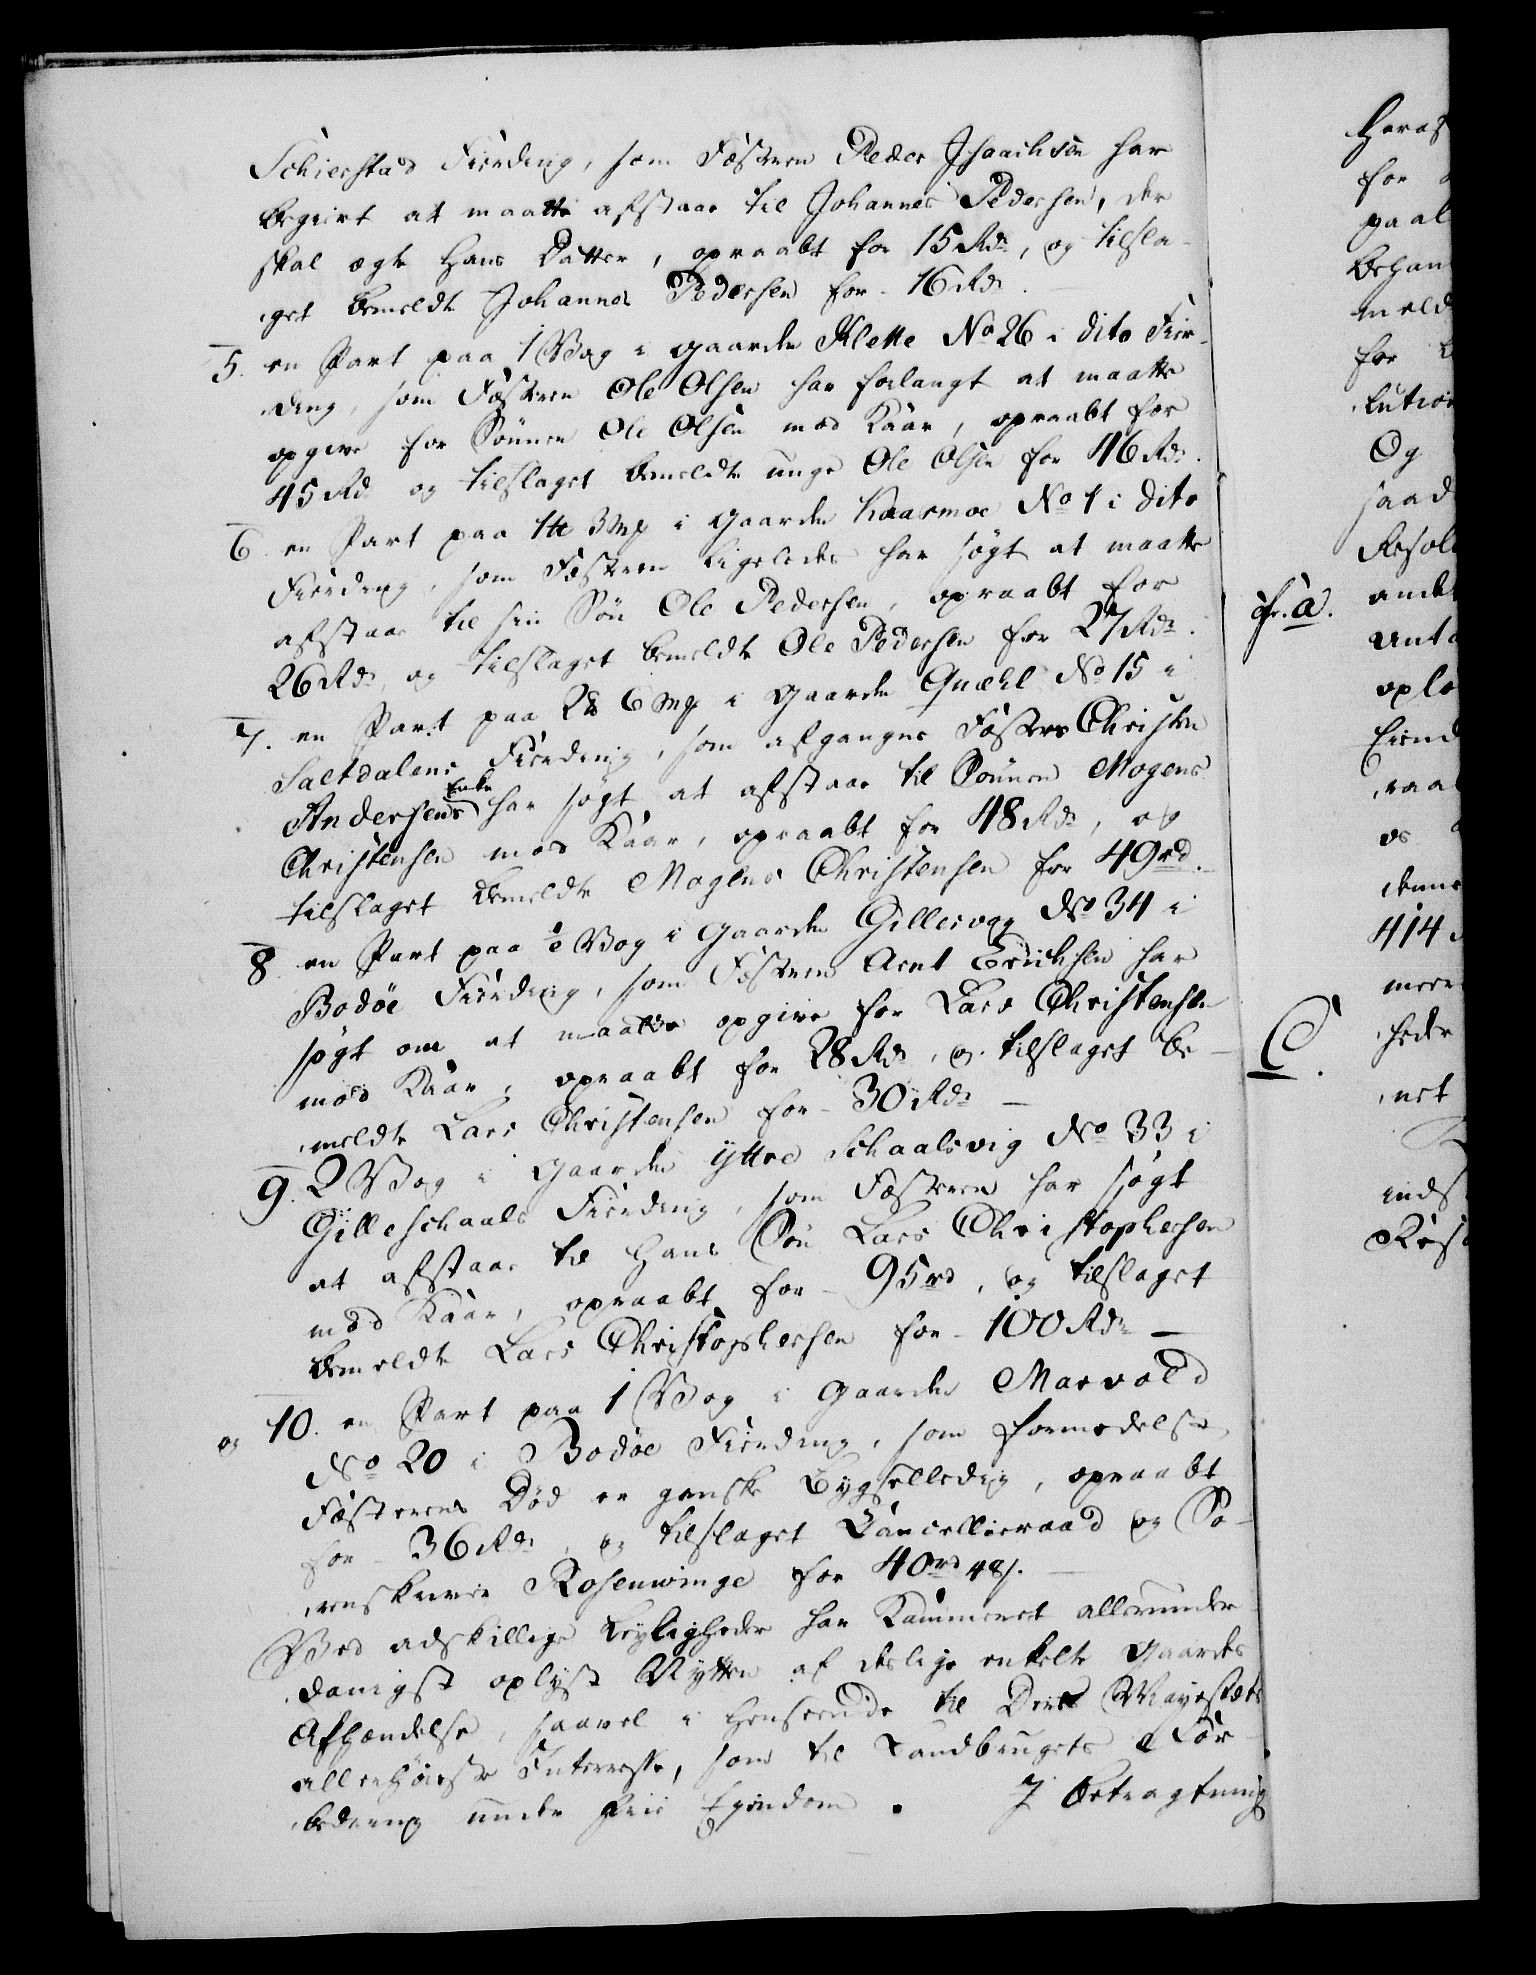 Schierstad Fierding, som Fæsteren Peder Jsaachsen har
begiert at maatte afstaae til Johannes Pedersen, der
skal ægte hans Datter, opraabt for 15 Rdr, og tilsla-
get bemeldte Johannes Pedersen for - 16 Rdr.
5. en Part paa 1 Vog i Gaarden Klette No 26 i dito Fier-
ding, som Fæsteren Ole Olsen har forlangt at maatte
opgive for Sönnen Ole Olsen mod Kaar, opraabt for
45 Rdr og tilslaget bemeldte unge Ole Olsen for 46 Rdr.
6 en Part paa 1 ℔ 3 mk i Gaarden Kaarmoe No 1 i dito
Fierding, som Fæsteren ligeledes har sögt at maatte
afstaae til sin Sön Ole Pedersen, opraabt for
26 Rdr, og tilslaget bemeldte Ole Pedersen for 27 Rdr.
7. en Part paa 2 ℔ 6 mk i Gaarden Qvæhl No 15 i
Saltdalens Fierding, som afgangne Fæsters Christen
Andersens Enke har sögt at afstaae til Sönnen Mogens
Christensen mod Kaar, opraabt for 48 Rdr, og
tilslaget bemeldte Mogens Christensen for 49 rd.
8 en Part paa ½ Vog i Gaarden Gillesvog No 34 i
Bodöe Fierding, som Fæsteren Arnt Erichsen har
sögt om at maatte opgive for Lars Christensen
mod Kaar, opraabt for 28 Rdr, og tilslaget be-
meldte Lars Christensen for - 30 Rdr -
9. 2 Vog i Gaarden ÿttre Schaalsvig No 33 i
Gilleschaals Fierding, som Fæsteren har sögt
at afstaae til hans Sön Lars Christophersen
mod Kaar, opraabt for - 95 rd, og tilslaget
bemeldte Lars Christophersen for - 100 Rdr -
og 10. en Part paa 1 Vog i Gaarden Marvold
No 20 i Bodöe Fierding, som formedelst
Fæsterens Död er ganske Bygselledig, opraabt
for - 36 Rdr, og tilslaget Cancellieraad og So-
renskriver Rosenvinge for 40 rd 48 s.
Ved adskillige Leyligheder har Kammeret allerunder-
danigst oplyst Nytten af deslige enkelte Gaardes
Afhændelse, saavel i Henseende til Deres Mayestæts
allerhöieste Interesse, som til Landbrugets For-
bedring under frie Eyendom. J Betragtning
for
paal
behan
meld
for
lution
Og
saad
Resol
cfr. a.
andet
anta
oplo
Eiend
raa
os
denne
414
meere
C.
heder
net
inds
Reso